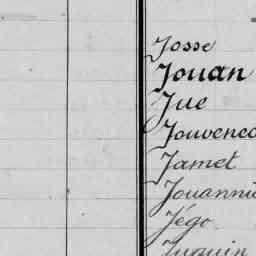 Josse
Jouan
Jue
Jouvenec
Jamet
Jouanni
Jégo
Juguin